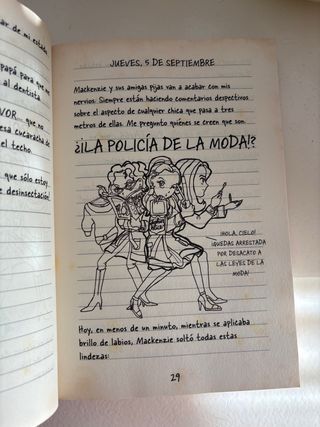 ar de mi estado
papá para que me
al dentista
VOR... que no
esa cucaracha de
el techo.
que sólo estoy
e desinsectación!
JUEVES, 5 DE SEPTIEMBRE
Mackenzie y sus amigas pijas van a acabar con mis
nervios. Siempre están haciendo comentarios despectivos
sobre el aspecto de cualquier chica que pasa a tres
metros de ellas. Me pregunto quiénes se creen que son.
¿¡LA POLICÍA DE LA MODA!?
¡HOLA, CIELO!
¡QUEDAS ARRESTADA
POR DESACATO A
LAS LEYES DE LA
MODA!
Hoy, en menos de un minuto, mientras se aplicaba
brillo de labios, Mackenzie soltó todas estas
lindezas:
29